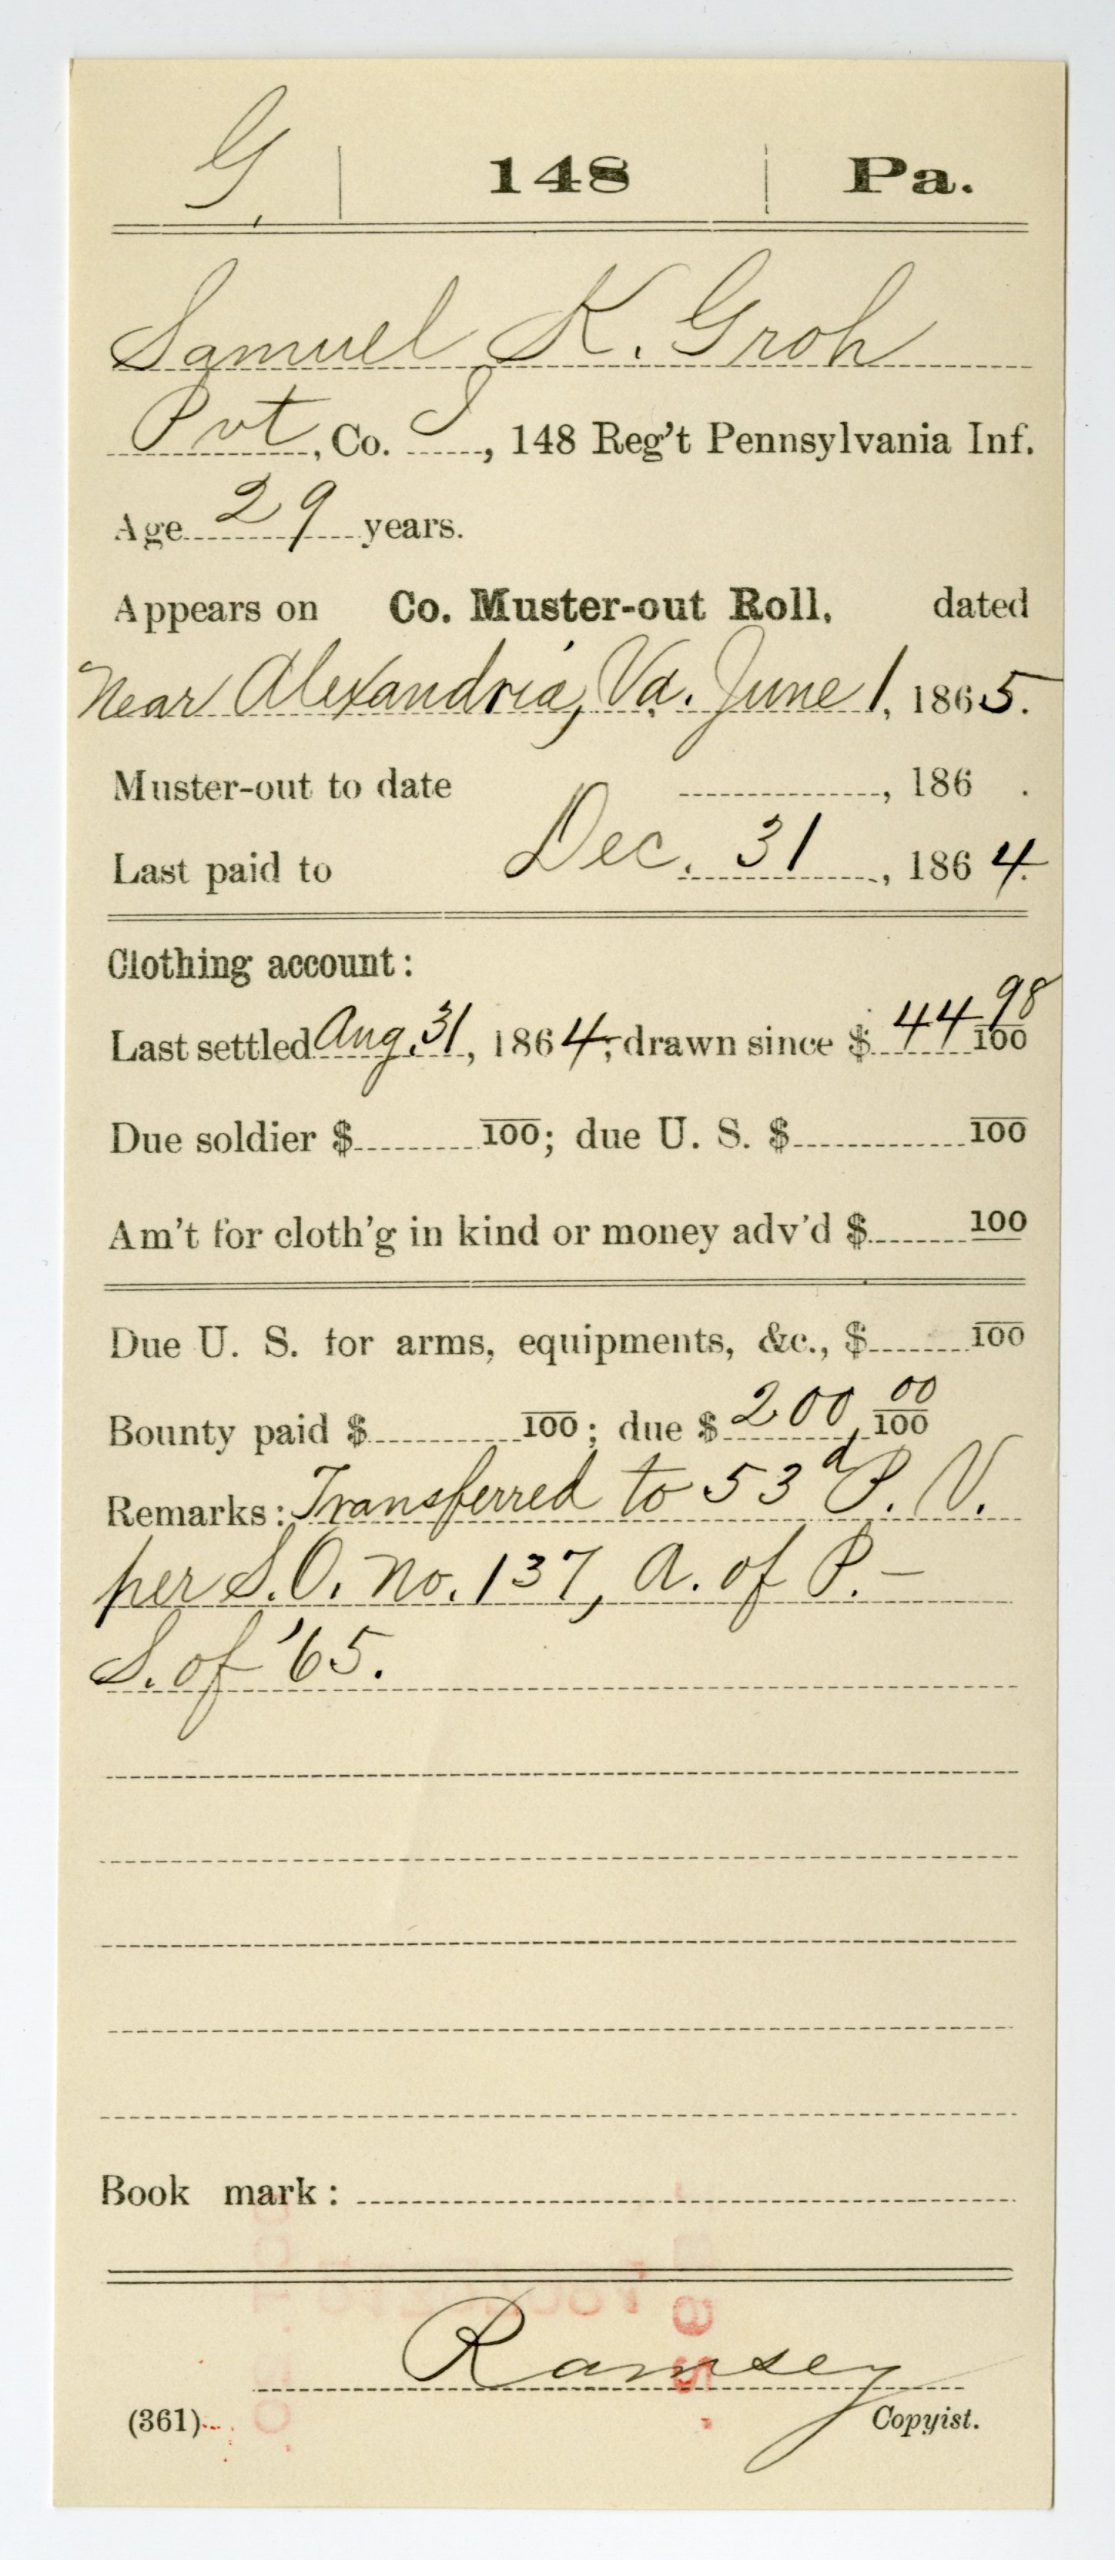 G, | 148 | Pa.
Samuel K. Groh
Pvt, Co. I, 148 Reg't Pennsylvania Inf.
Age 29 years.
Appears on Co. Muster-out Roll, dated
Near Alexandria, Va. June 1, 1865.
Muster-out to date , 186 .
Last paid to Dec. 31, 1864.
Clothing account:
Last settled Aug. 31, 1864; drawn since $ 44 98/100
Due soldier $ 100; due U. S. $ 100
Am't for cloth'g in kind or money adv'd $ 100
Due U. S. for arms, equipments, &c., $ 100
Bounty paid $ 100; due $ 200 00/100
Remarks: Transferred to 53d P. V.
per S.O. No. 137, A. of P. –
S. of '65.
Book mark:
Ramsey
(361) Copyist.